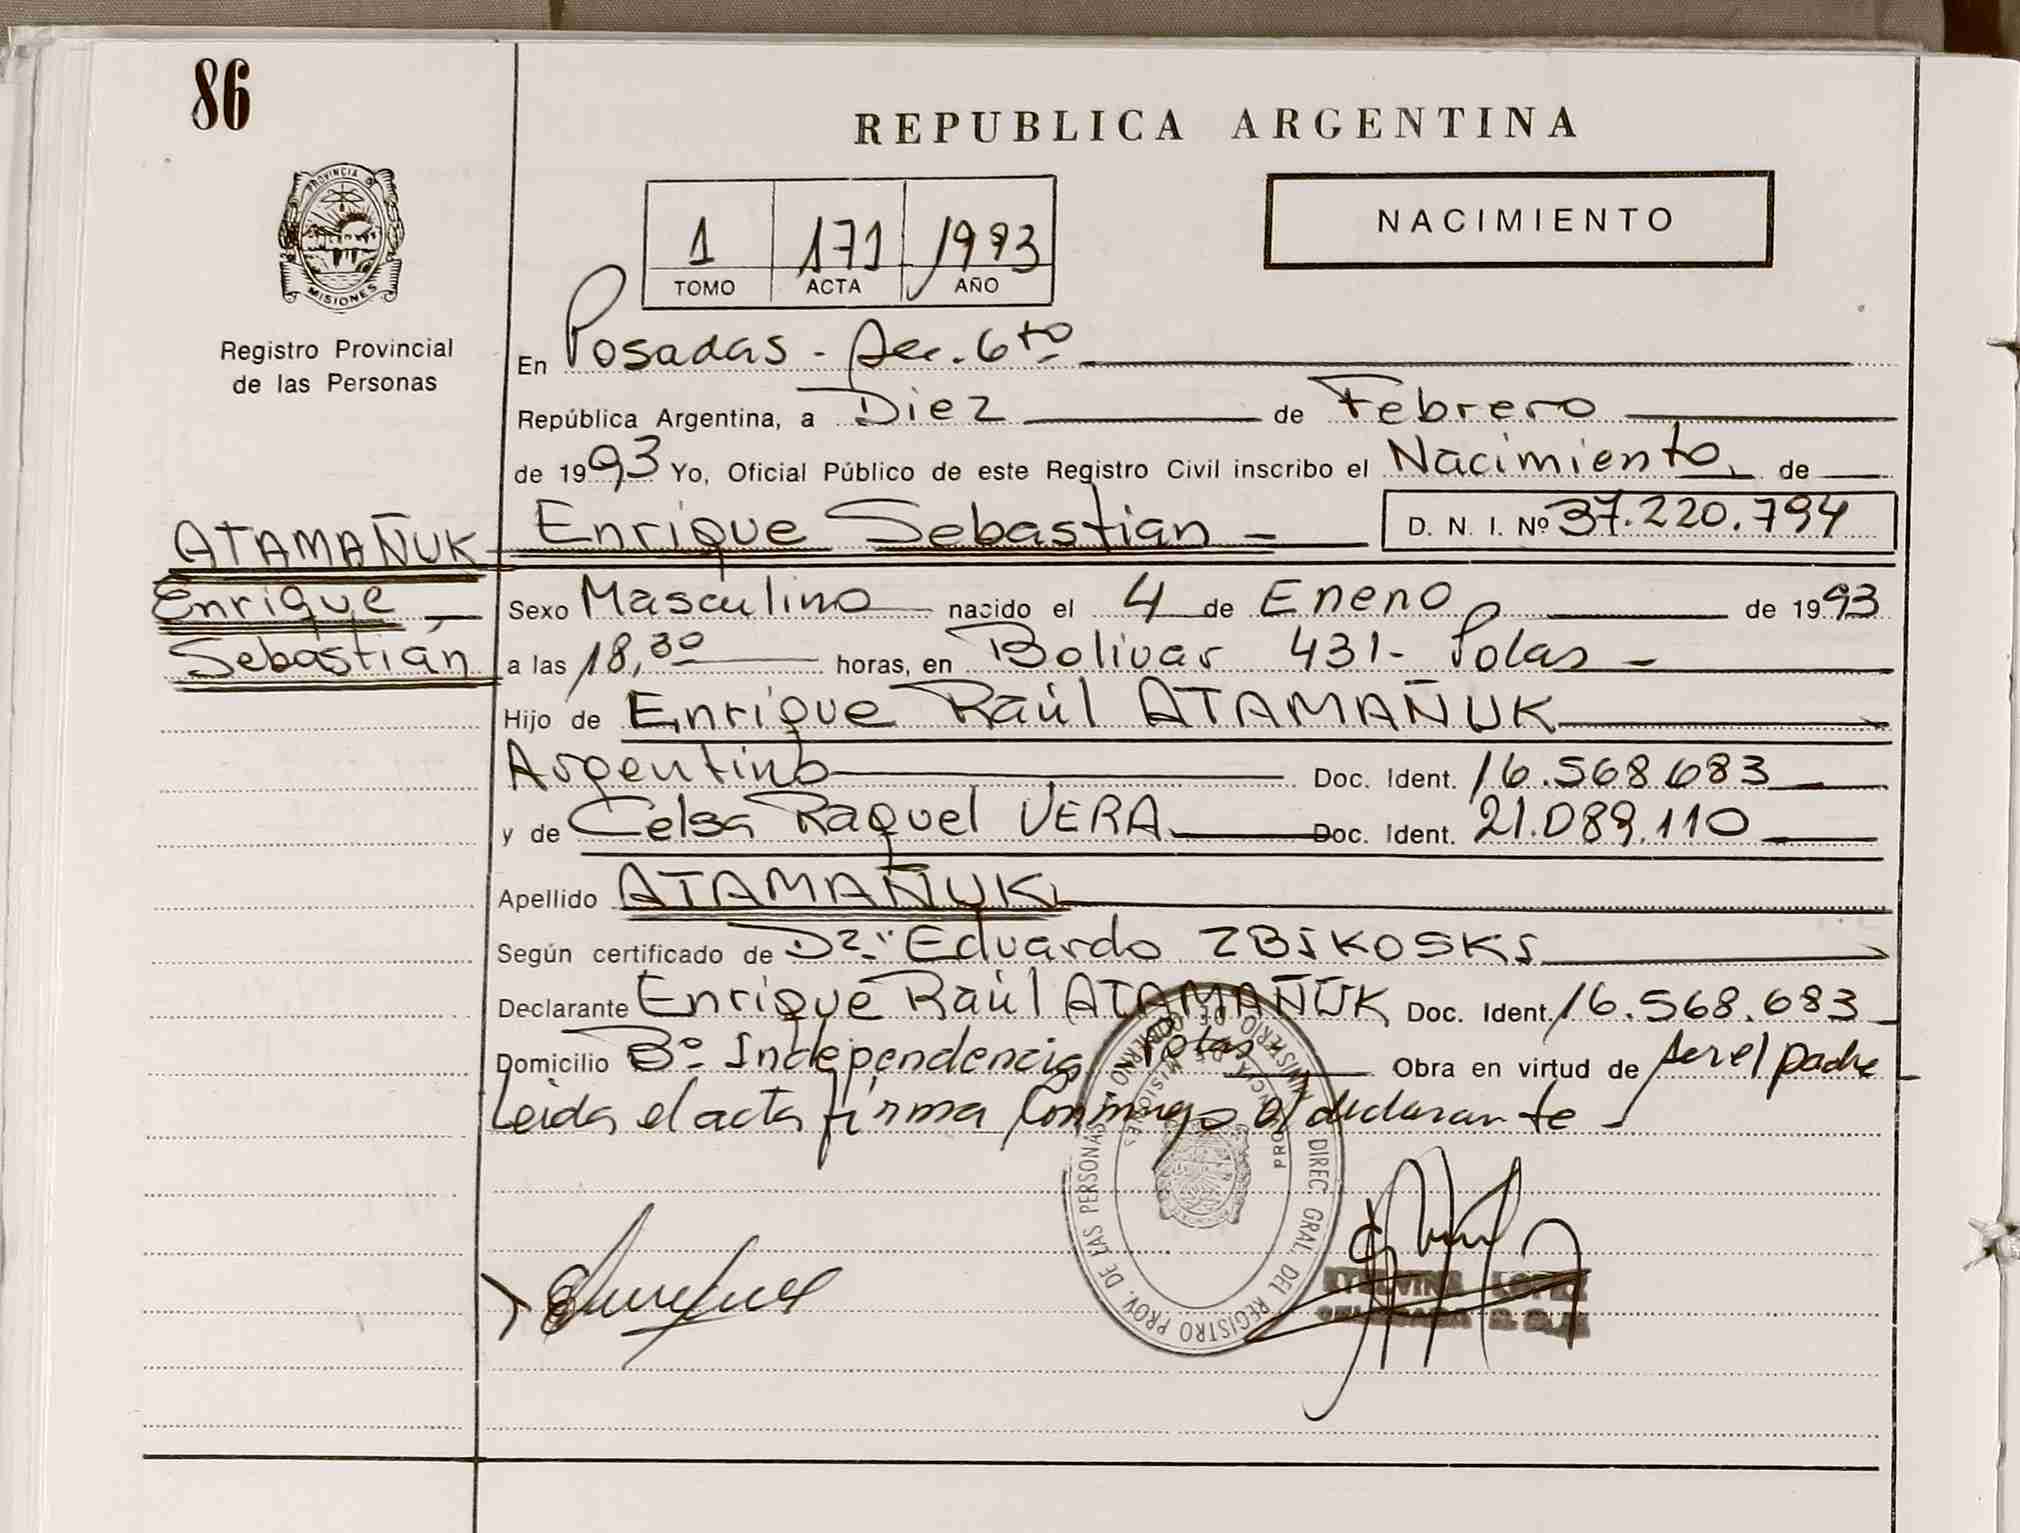 86
REPUBLICA ARGENTINA
PROVINCIA D
MISIONES
Registro Provincial
de las Personas
NACIMIENTO
1 171 1993
TOMO ACTA AÑO
En Posadas - Sec. 6to
República Argentina, a Diez de Febrero
de 1993 Yo, Oficial Público de este Registro Civil inscribo el Nacimiento, de
ATAMAÑUK
Enrique
Sebastián
Enrique Sebastian D. N. I. Nº 37.220.794
Sexo Masculino nacido el 4 de Enero de 1993
a las 18,30 horas, en Bolivar 431- Pdas -
Hijo de Enrique Raúl ATAMAÑUK
Argentino Doc. Ident. 16.568.683
y de Celsa Raquel VERA Doc. Ident. 21.089.110
Apellido ATAMAÑUK
Según certificado de Dr. Eduardo ZBIKOSKI
Declarante Enrique Raúl ATAMAÑUK Doc. Ident. 16.568.683
Domicilio Bº Independencia Pdas- Obra en virtud de ser el padre
Leida el acta firma conmigo el declarante -
DIREC. GRAL. DEL REGISTRO PROV. DE LAS PERSONAS
MINISTERIO DE GOBIERNO
PROVINCIA DE MISIONES
LOPEZ